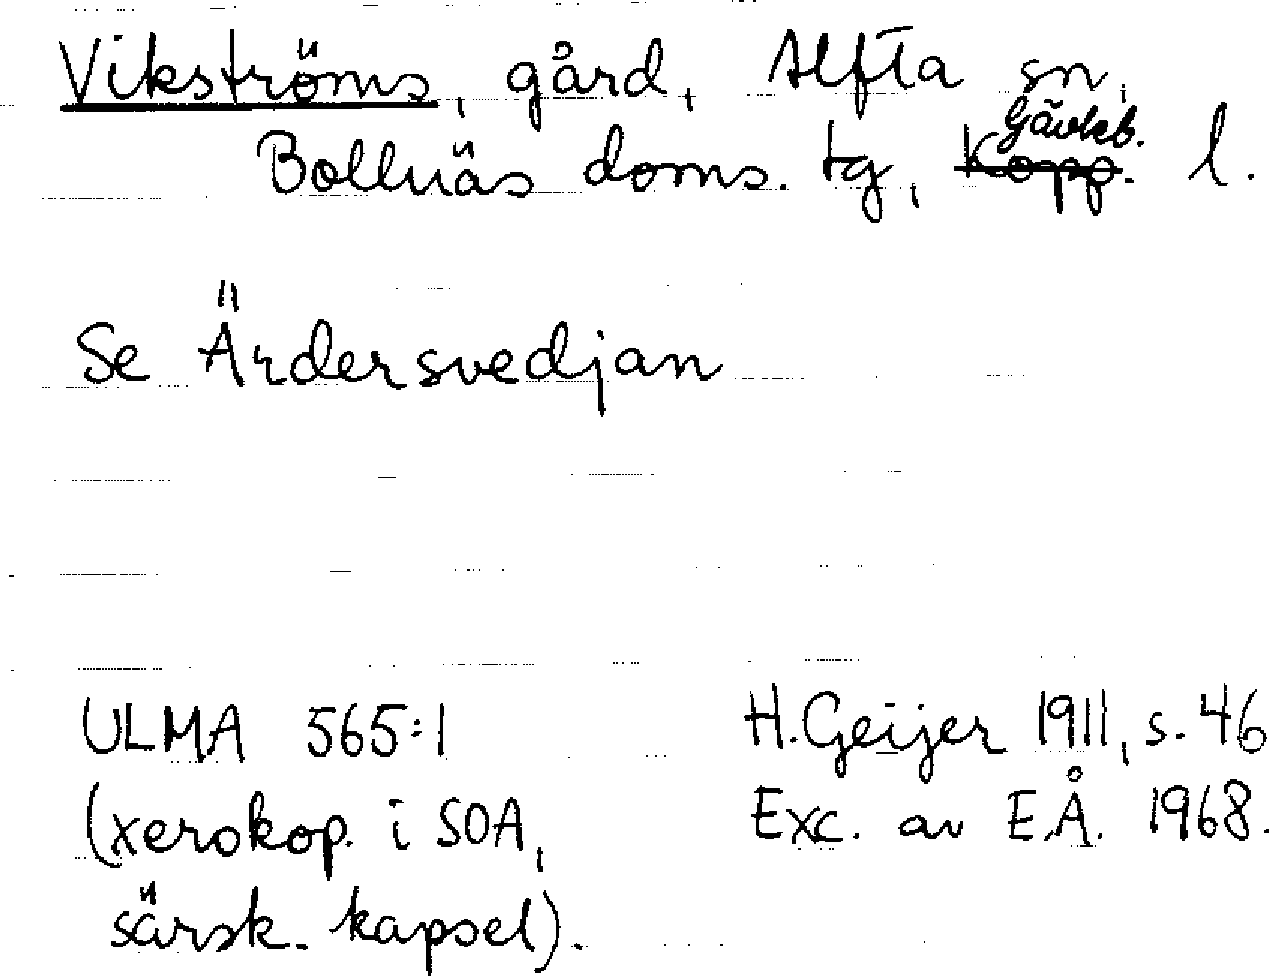 Vikströms, gård, Alfta sn,
Bollnäs doms. tg, Kopp. Gävleb. l.
Se Ärdersvedjan
ULMA 565:1
(xerokop. i SOA,
särsk. kapsel).
H. Geijer 1911, s. 46
Exc. av E.Å. 1968.